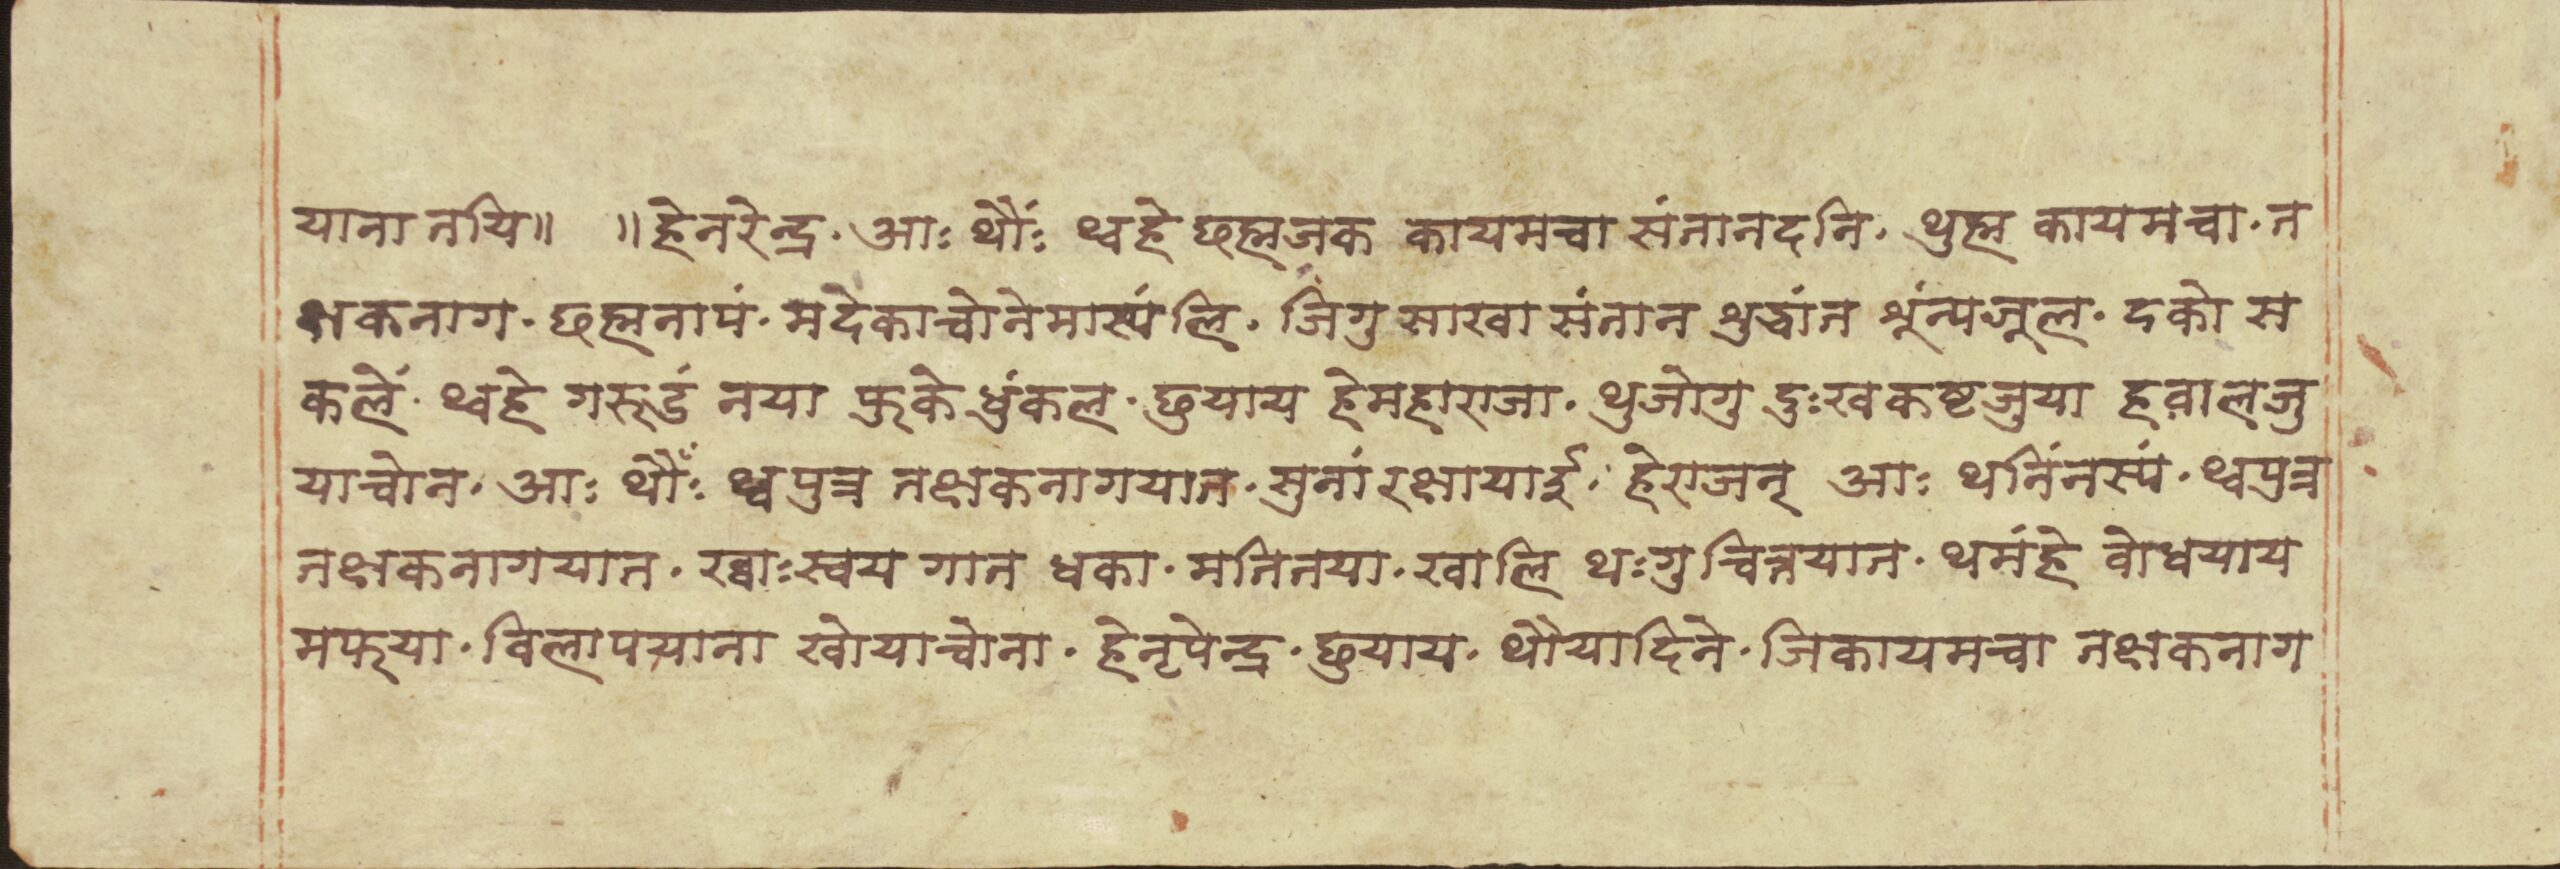 याना तयि॥ ॥हेनरेन्द्र· आः थौंः थ्वहे छह्मजक कायमचा संतानदनि· थुह्म कायमचा· त
क्षकनाग· छह्मनापं· मदेकाच्वोनेमार्स्यंलि· जिंगु साखा संतान शुद्धांत श्रूंन्यजूल· दको स
कलें· थ्वहे गरूडं नया फुके धुंकल· छुयाय हेमहाराजा· थुजोगु दुःखकष्टजुया हवालजु
याच्वोन· आः थौंः थ्वपुत्र तक्षकनागयात· सुनां रक्षायाई· हेराजन् आः थनिंनस्यं· थ्वपुत्र
तक्षकनागयात· ख्वाःस्वय गात धका· मतितया· खालि थःगुचित्तयात· थमंहे वोधयाय
मफया· विलापयाना खोयाच्वोना· हेनृपेन्द्र· छुयाय· थौयादिने· जिकायमचा तक्षकनाग